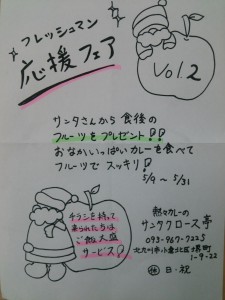 フレッシュマン
応援フェア
Vol.2
サンタさんから食後の
フルーツをプレゼント!!
おなかいっぱいカレーを食べて
フルーツでスッキリ!
5/9～5/31
チラシを持って
来られた方は
ご飯大盛
サービス!
熱々カレーの
サンタクロース亭
093-967-7225
北九州市小倉北区堺町
1-9-22
休 日・祝